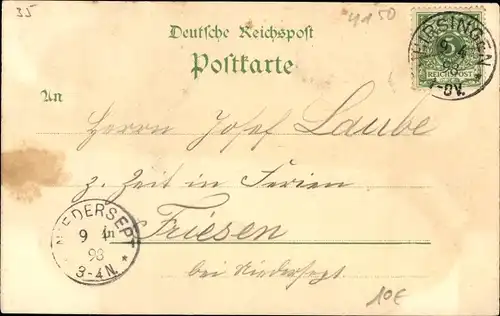 35
4150
Deutsche Reichspost
Postkarte
HIRSINGEN
9 4
98
7-8V.
5
REICHSPOST
An
Herrn Josef Laube
z. Zeit in Ferien
in Friesen
bei Niedersept.
NIEDERSEPT
9 4
98
3-4N.
10€